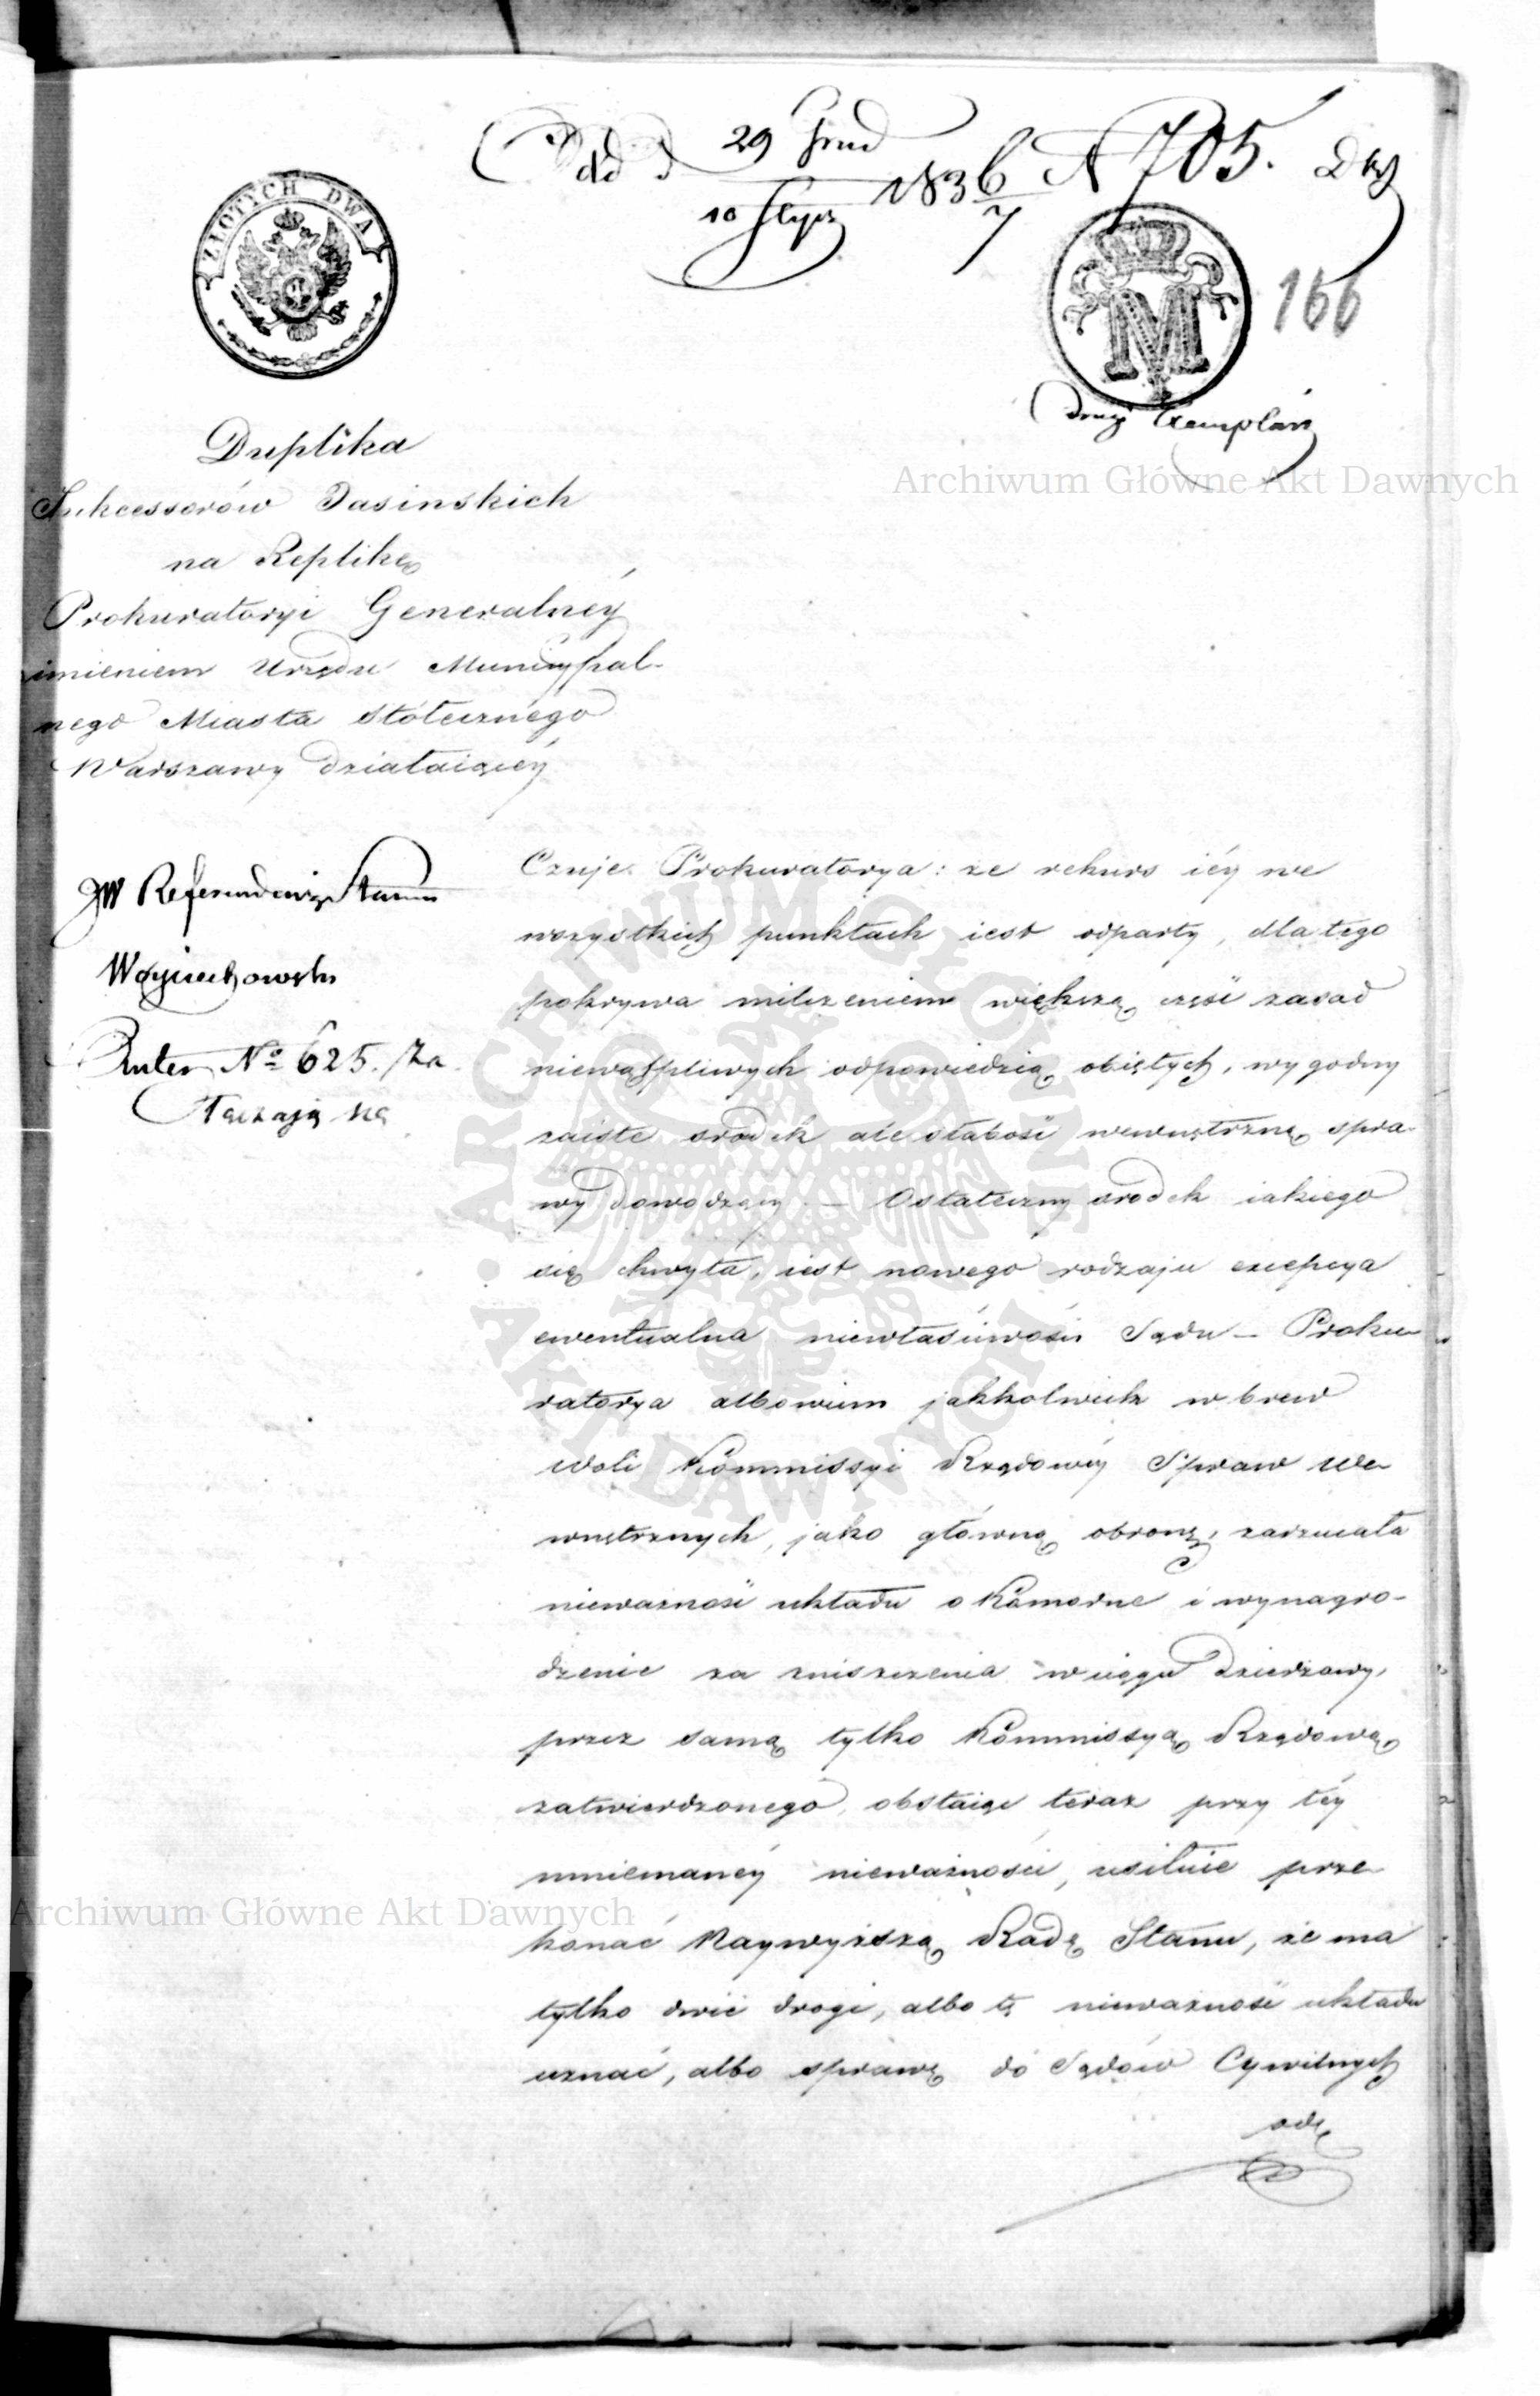 Odd d 29 Grud 1836 N 705. Dks
10 Stycz 7
ZŁOTYCH DWA
M
166
drugi Exemplarz
Archiwum Główne Akt Dawnych
Duplika
Sukcessorów Jasinskich
na Replikę
Prokuratoryi Generalnéy
imieniem Urzędu Municypal-
nego Miasta Stołecznego
Warszawy działaiącéy
JW Referendarz Stanu
Woyciechowski
Anten No 625.
łączają się
Czuje Prokuratorya: że rekurs iéy we
wszystkich punktach iest odparty, dla tego
pokrywa milczeniem większą część zasad
niewątpliwych odpowiedzią obiętych, wygodny
zaiste srodek ale słabość wewnętrzną spra-
wy dowodzący. — Ostateczny srodek iakiego
się chwyta, iest nowego rodzaju excepcya
ewentualna niewłaściwości Sądu — Proku-
ratorya albowiem jakkolwiek w brew
woli Kommissyi Rządowéy Spraw We-
wnętrznych, jako główną obronę, zarzucała
nieważność układu o Komorne i wynagro-
dzenie za zniszczenia w ciągu dzierżawy,
przez samą tylko Kommissyą Rządową
zatwierdzonego, obstaiąc teraz przy téy
mniemanéy nieważności, usiłuie prze-
konać Naywyższą Radę Stanu, że ma
tylko dwie drogi, albo tę nieważność układu
uznać, albo sprawę do Sądów Cywilnych
ode
ARCHIWUM GŁÓWNE AKT DAWNYCH
Archiwum Główne Akt Dawnych